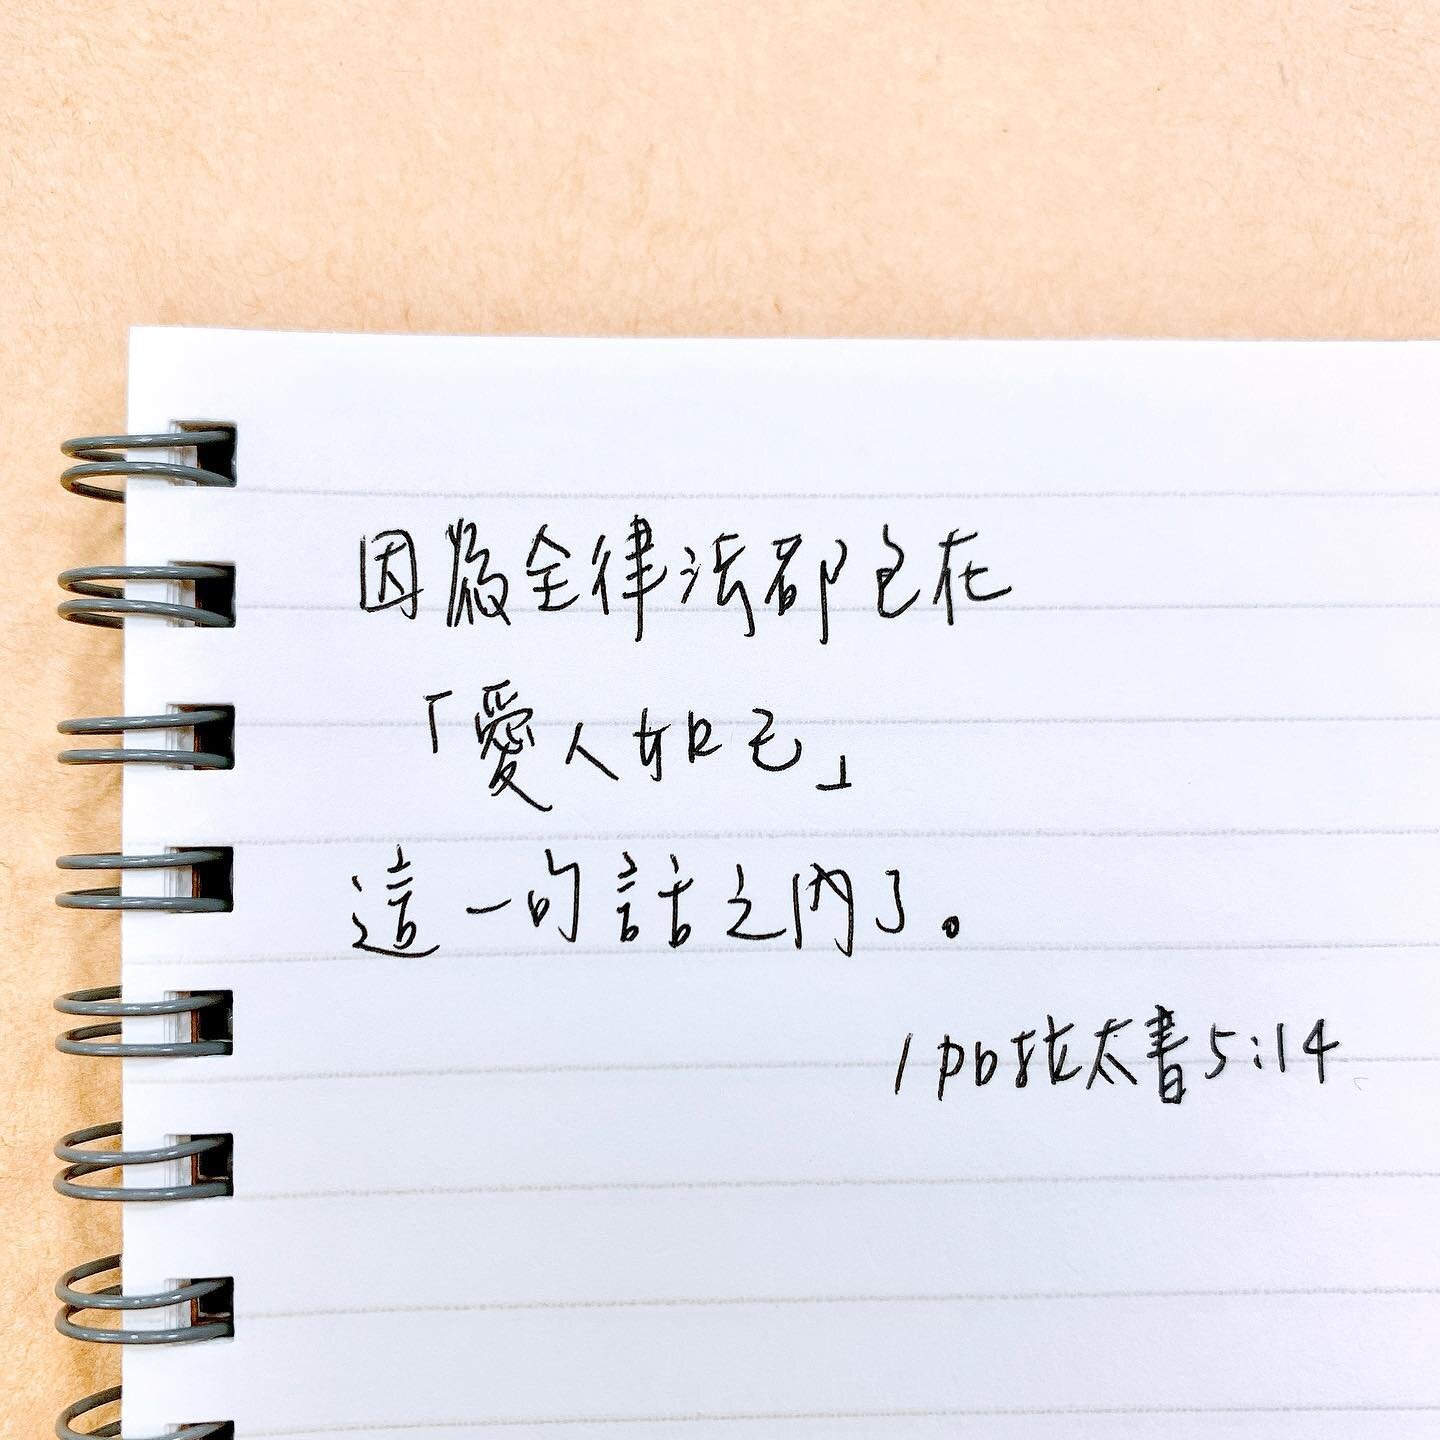 因為全律法都包在
「愛人如己」
這一句話之內了。
/加拉太書5:14